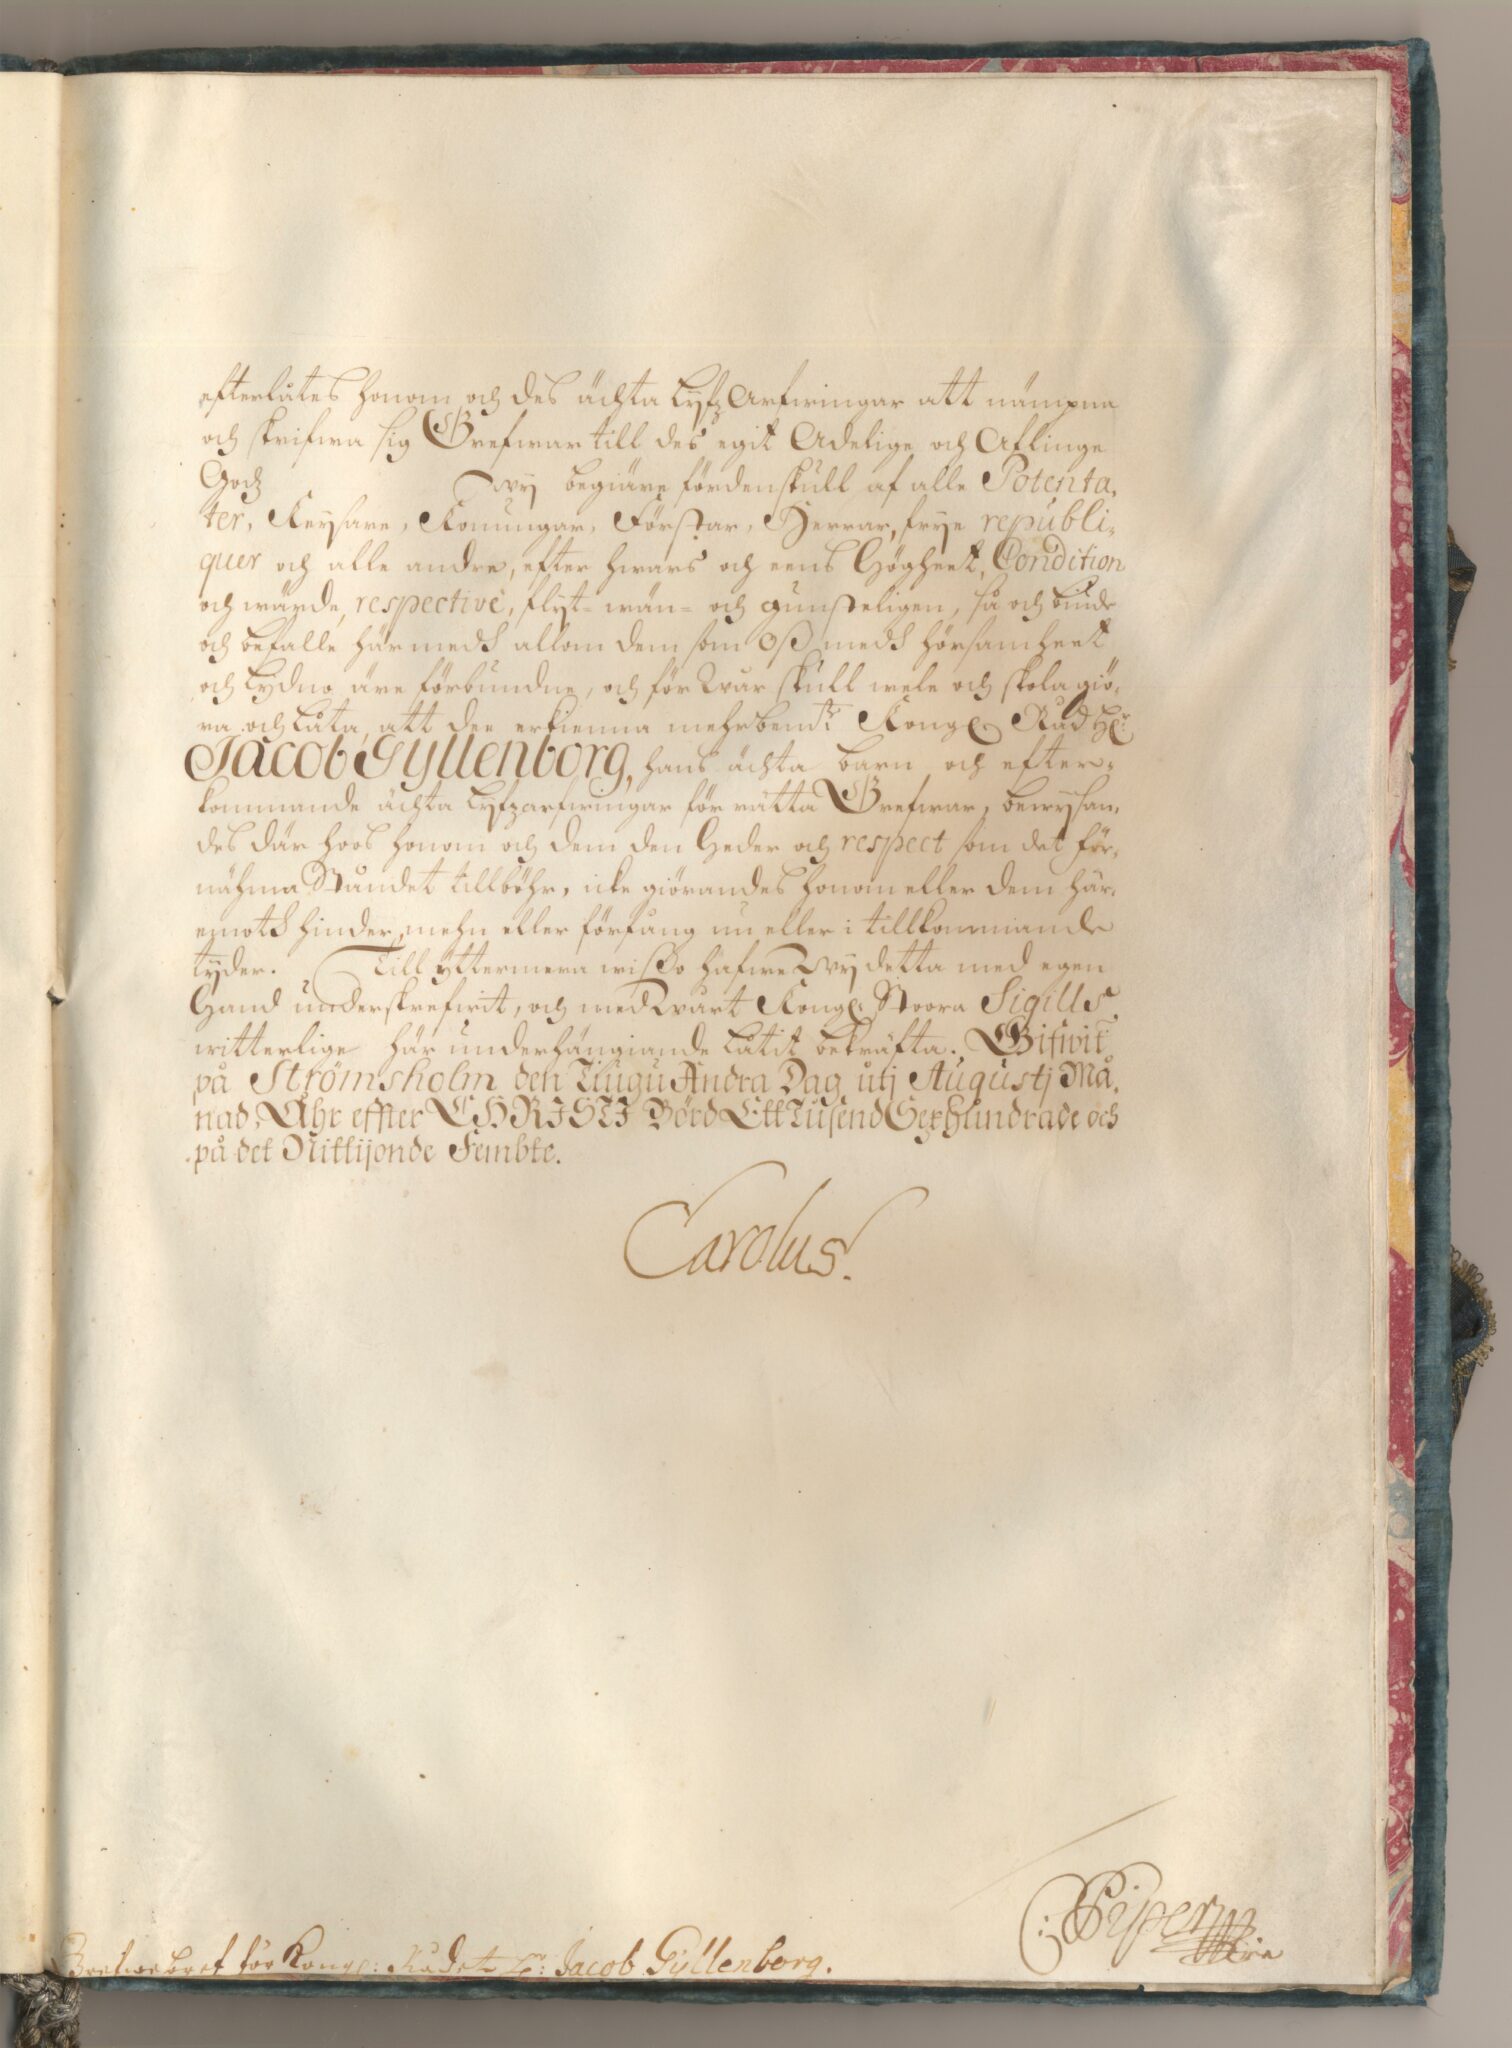 efterlåtes honom och des ächta Lyfz Arfwingar att nämpna
och skrifwa sig Grefwar till des egit Adelige och Aflinge
Godz Wij begiäre fördenskull af alle Potenta,
ter, Keysare, Konungar, Förstar, Herrar, frye republi,
quer och alle andre, efter hwars och eens Högheet, Condition
och wärde, respectivè, flyt= wän= och gunsteligen, så och biude
och befalle här medh allom dem som Oß medh hörsamheet
och Lydno äre förbundne, och för Wår skull wele och skola giö,
ra och låta, att dee erkienna mehrbem:te Kongl: Råd H:r
Jacob Gyllenborg, hans ächta barn och efter,
kommande ächta Lyfzarfwingar för rätta Grefwar, bewysan,
des där hoos honom och dem den Heder och respect som det för,
nähma Ståndet tillböhr, icke giörandes honom eller dem här,
emoth hinder, mehn eller förfång nu eller i tillkommande
tyder. Till yttermera wißo hafwe Wij detta med egen
Hand underskrefwit, och med Wårt Kongl: Stoora Sigill
witterlige här underhängiande låtit bekräfta. Gifwit
på Strömsholm den Tiugu Andra Dag utj Augustj Må,
nad, Åhr effter CHRISTJ Börd Ett Tusend Sex Hundrade och
på det Nittijonde Fembte.
Carolus.
C: Piper
Grefwebref för Kongl: Rådet H:r Jacob Gyllenborg.